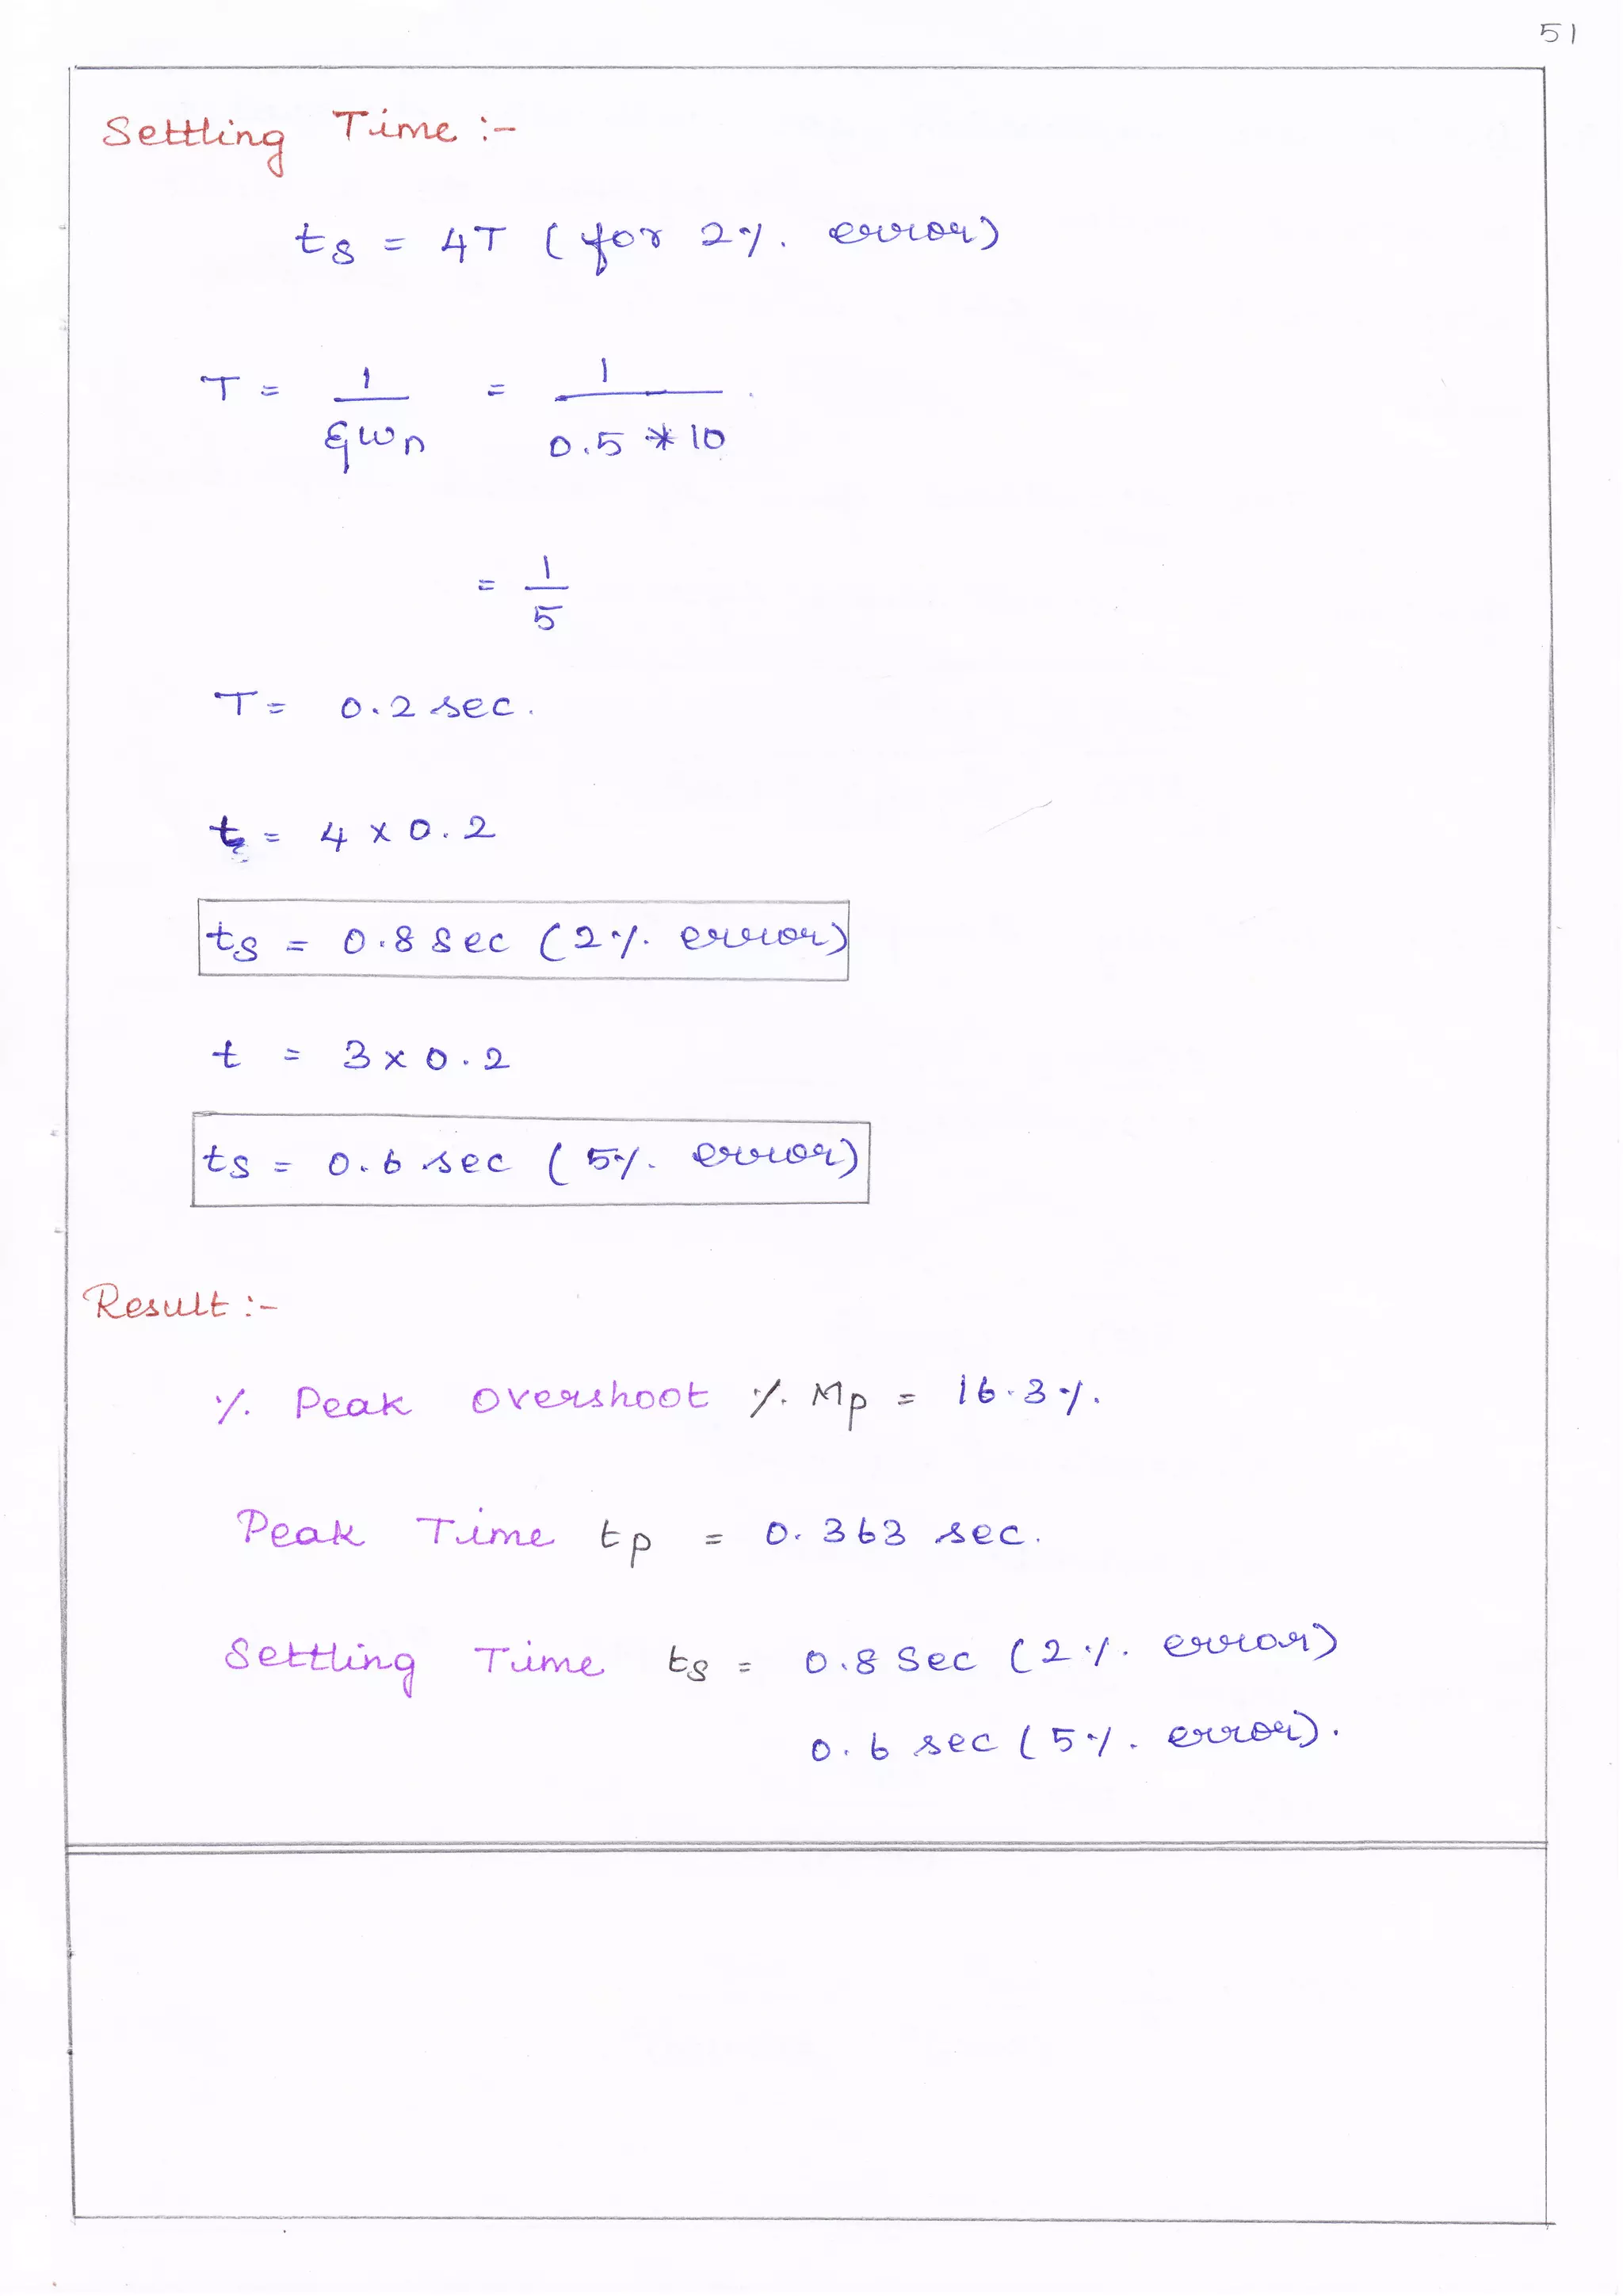 51
Settling Time :-
ts = 4T ( for 2%. error)
T = 1/ξωn = 1/0.5 * 10
= 1/5
T = 0.2 sec.
ts = 4 x 0.2
ts = 0.8 sec (2%. error)
t = 3 x 0.2
ts = 0.6 sec ( 5%. error)
Result :-
%. Peak Overshoot %. Mp = 16.3%.
Peak Time tp = 0.363 sec.
Settling Time ts = 0.8 Sec (2%. error)
0.6 sec (5%. error).